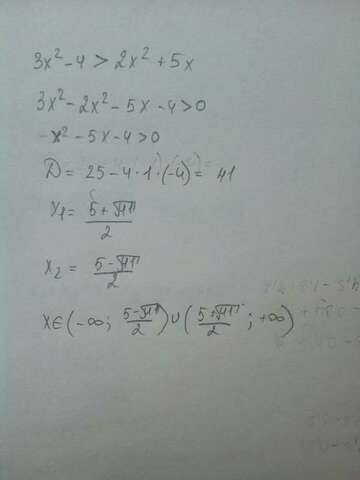 3x² - 4 > 2x² + 5x
3x² - 2x² - 5x - 4 > 0
x² - 5x - 4 > 0
D = 25 - 4 · 1 · (-4) = 41
x₁ = (5 + √41)/2
x₂ = (5 - √41)/2
x ∈ (-∞; (5 - √41)/2) ∪ ((5 + √41)/2; +∞)